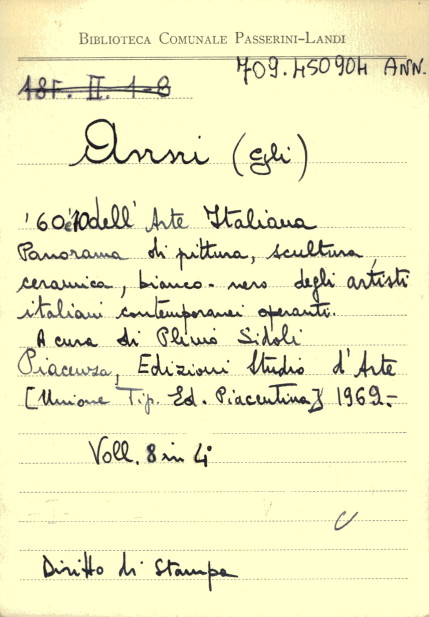 BIBLIOTECA COMUNALE PASSERINI-LANDI
709.450904 ANN.
18F. II. 1-8
Anni (Gli)
'60 e '70 dell' Arte Italiana
Panorama di pittura, scultura,
ceramica, bianco-nero degli artisti
italiani contemporanei operanti.
A cura di Plinio Sidoli
Piacenza, Edizioni Studio d'Arte
[Unione Tip. Ed. Piacentina] 1969.-
Voll. 8 in 4°
Diritto di Stampa